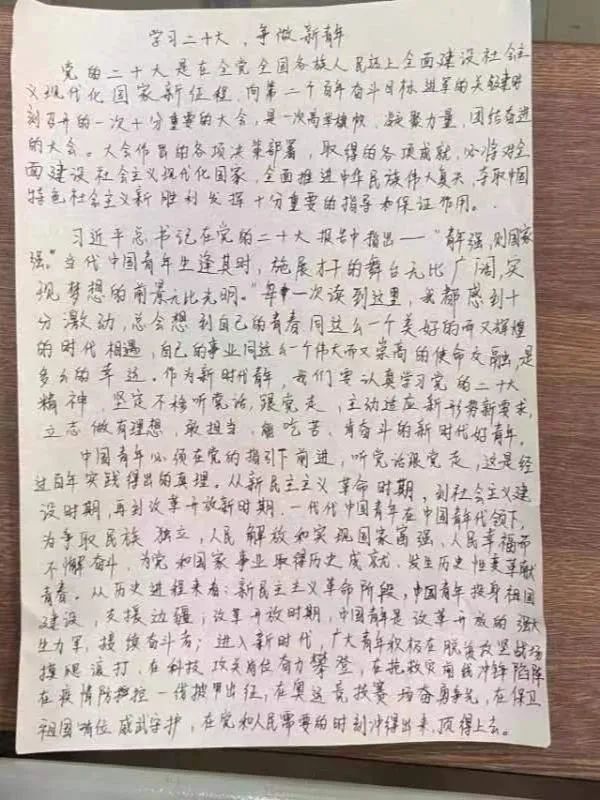 学习二十大，争做新青年
党的二十大是在全党全国各族人民迈上全面建设社会主
义现代化国家新征程，向第二个百年奋斗目标进军的关键时
刻召开的一次十分重要的大会，是一次高举旗帜、凝聚力量、团结奋进
的大会。大会作出的各项决策部署，取得的各项成就，必将对全
面建设社会主义现代化国家，全面推进中华民族伟大复兴，夺取中国
特色社会主义新胜利发挥十分重要的指导和保证作用。
习近平总书记在党的二十大报告中指出——“青年强，则国家
强。”当代中国青年生逢其时，施展才干的舞台无比广阔，实
现梦想的前景无比光明。”每一次读到这里，我都感到十
分激动，总会想到自己的青春同这么一个美好的而又辉煌
的时代相遇，自己的事业同这么一个伟大而又崇高的使命交融，是
多么的幸运。作为新时代青年，我们要认真学习党的二十大
精神，坚定不移听党话、跟党走，主动适应新形势新要求，
立志做有理想、敢担当、能吃苦、肯奋斗的新时代好青年。
中国青年必须在党的指引下前进，听党话跟党走，这是经
过百年实践得出的真理。从新民主主义革命时期，到社会主义建
设时期，再到改革开放新时期，一代代中国青年在中国青年代领下，
为争取民族独立，人民解放和实现国家富强、人民幸福而
不懈奋斗，为党和国家事业取得历史成就、发生历史性变革献
青春。从历史进程来看：新民主主义革命阶段，中国青年投身祖国
建设，支援边疆；改革开放时期，中国青年是改革开放的强大
生力军，接续奋斗者；进入新时代，广大青年积极在脱贫攻坚战场
摸爬滚打，在科技攻关岗位奋力攀登，在抢救灾前线冲锋陷阵
在疫情防控一线披甲出征，在奥运竞技赛场奋勇争先，在保卫
祖国岗位威武守护，在党和人民需要的时刻冲得出来、顶得上去。